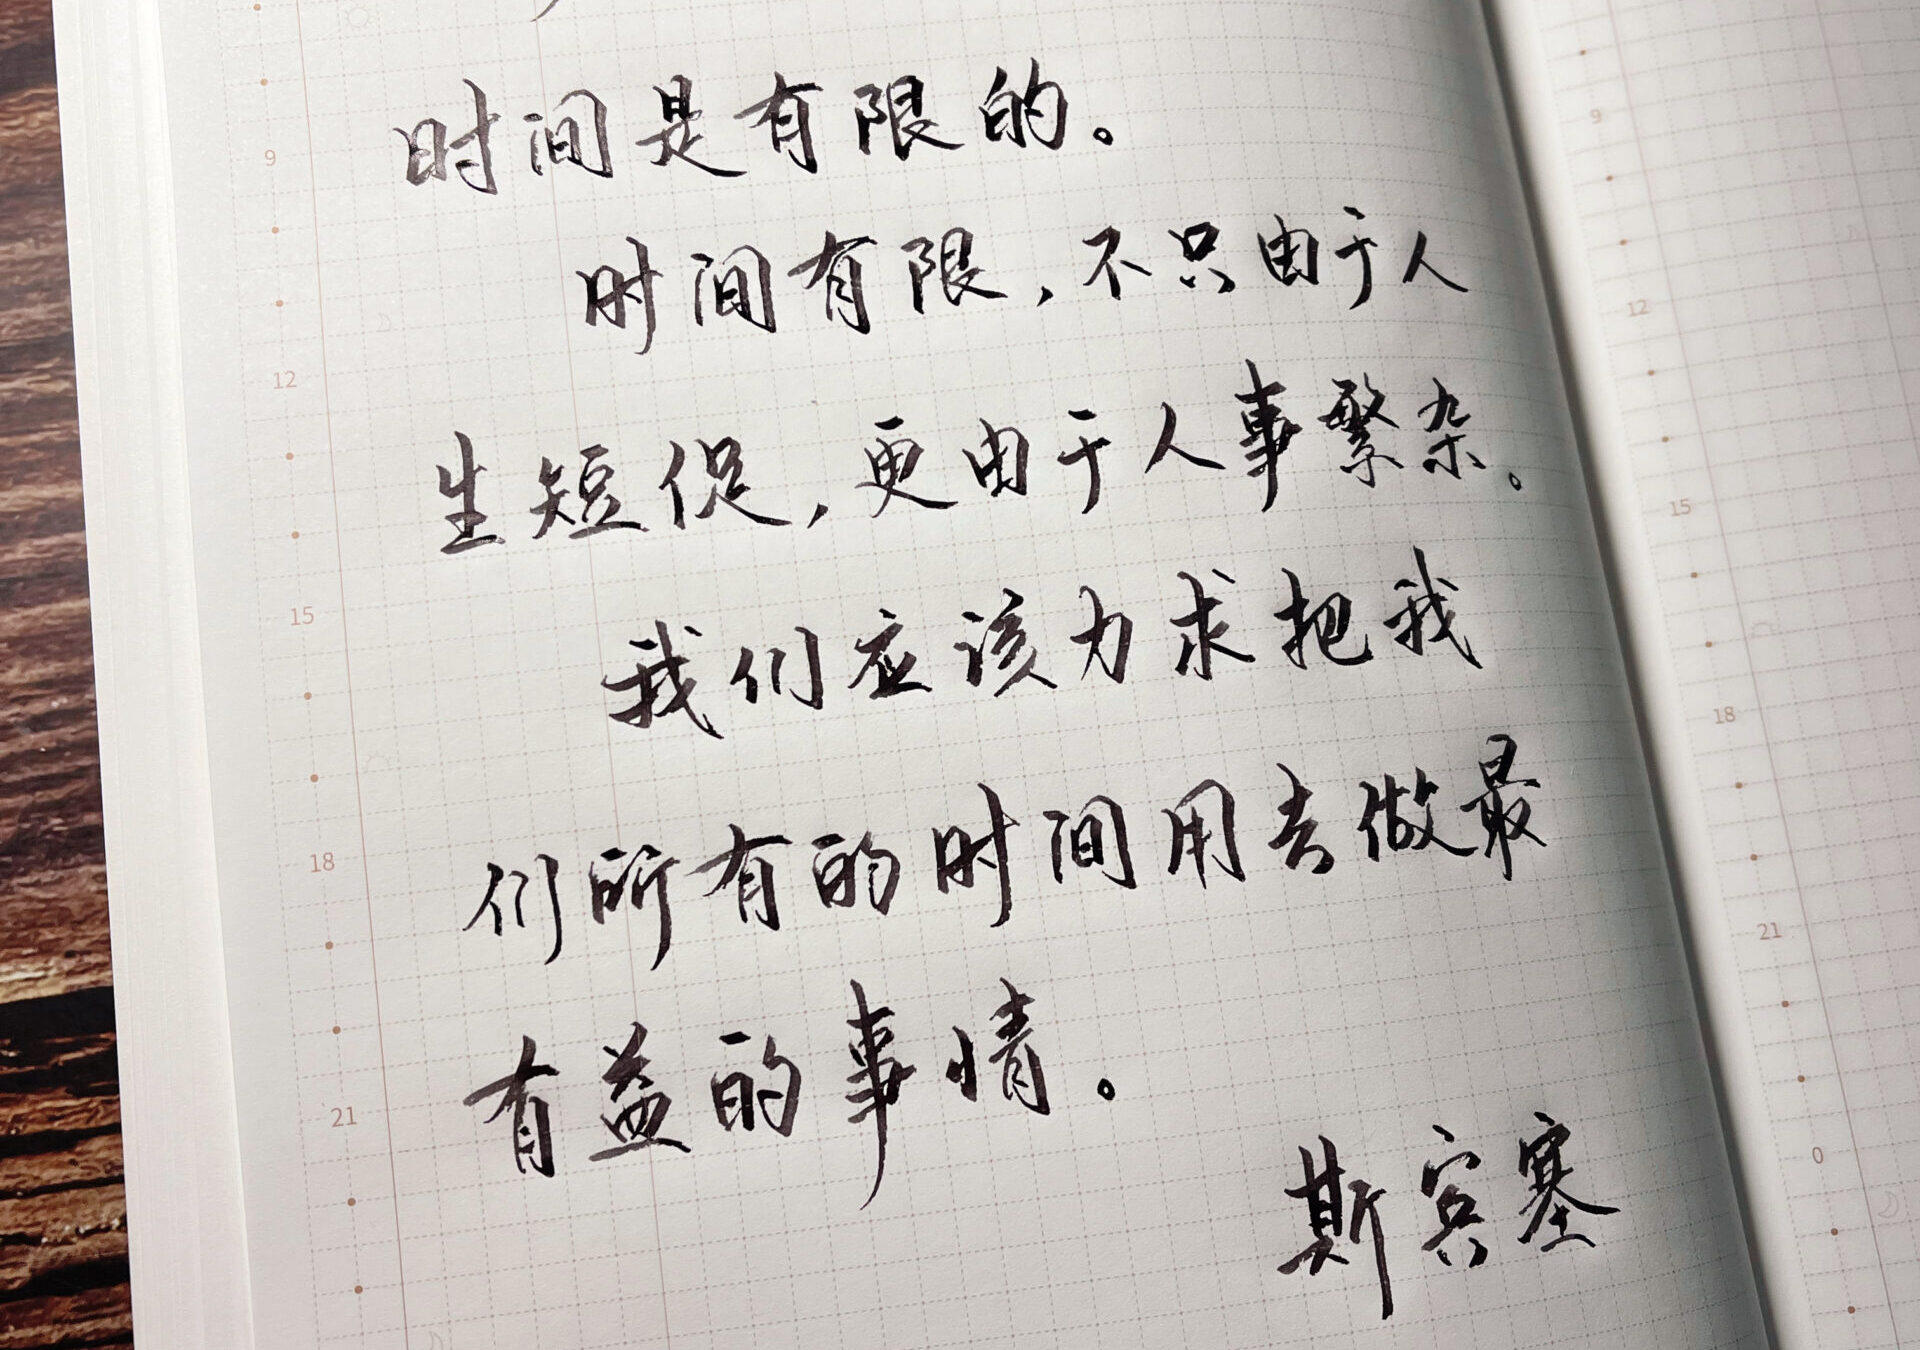 时间是有限的。
时间有限，不只由于人
生短促，更由于人事繁杂。
我们应该力求把我
们所有的时间用去做最
有益的事情。
斯宾塞
9
12
15
18
21
9
12
15
18
21
0